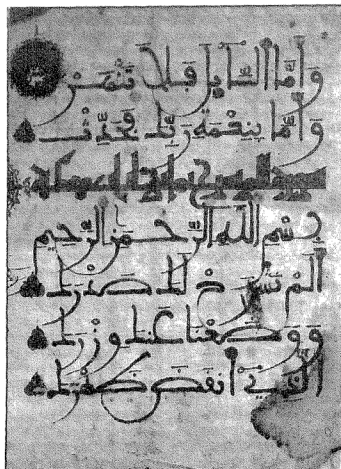 وَأَمَّا السَّآئِلَ فَلَا تَنْهَرْ
وَأَمَّا بِنِعْمَةِ رَبِّكَ فَحَدِّثْ
سورة
بِسْمِ اللَّهِ الرَّحْمَنِ الرَّحِيمِ
أَلَمْ نَشْرَحْ لَكَ صَدْرَكَ
وَوَضَعْنَا عَنكَ وِزْرَكَ
الَّذِي أَنقَضَ ظَهْرَكَ